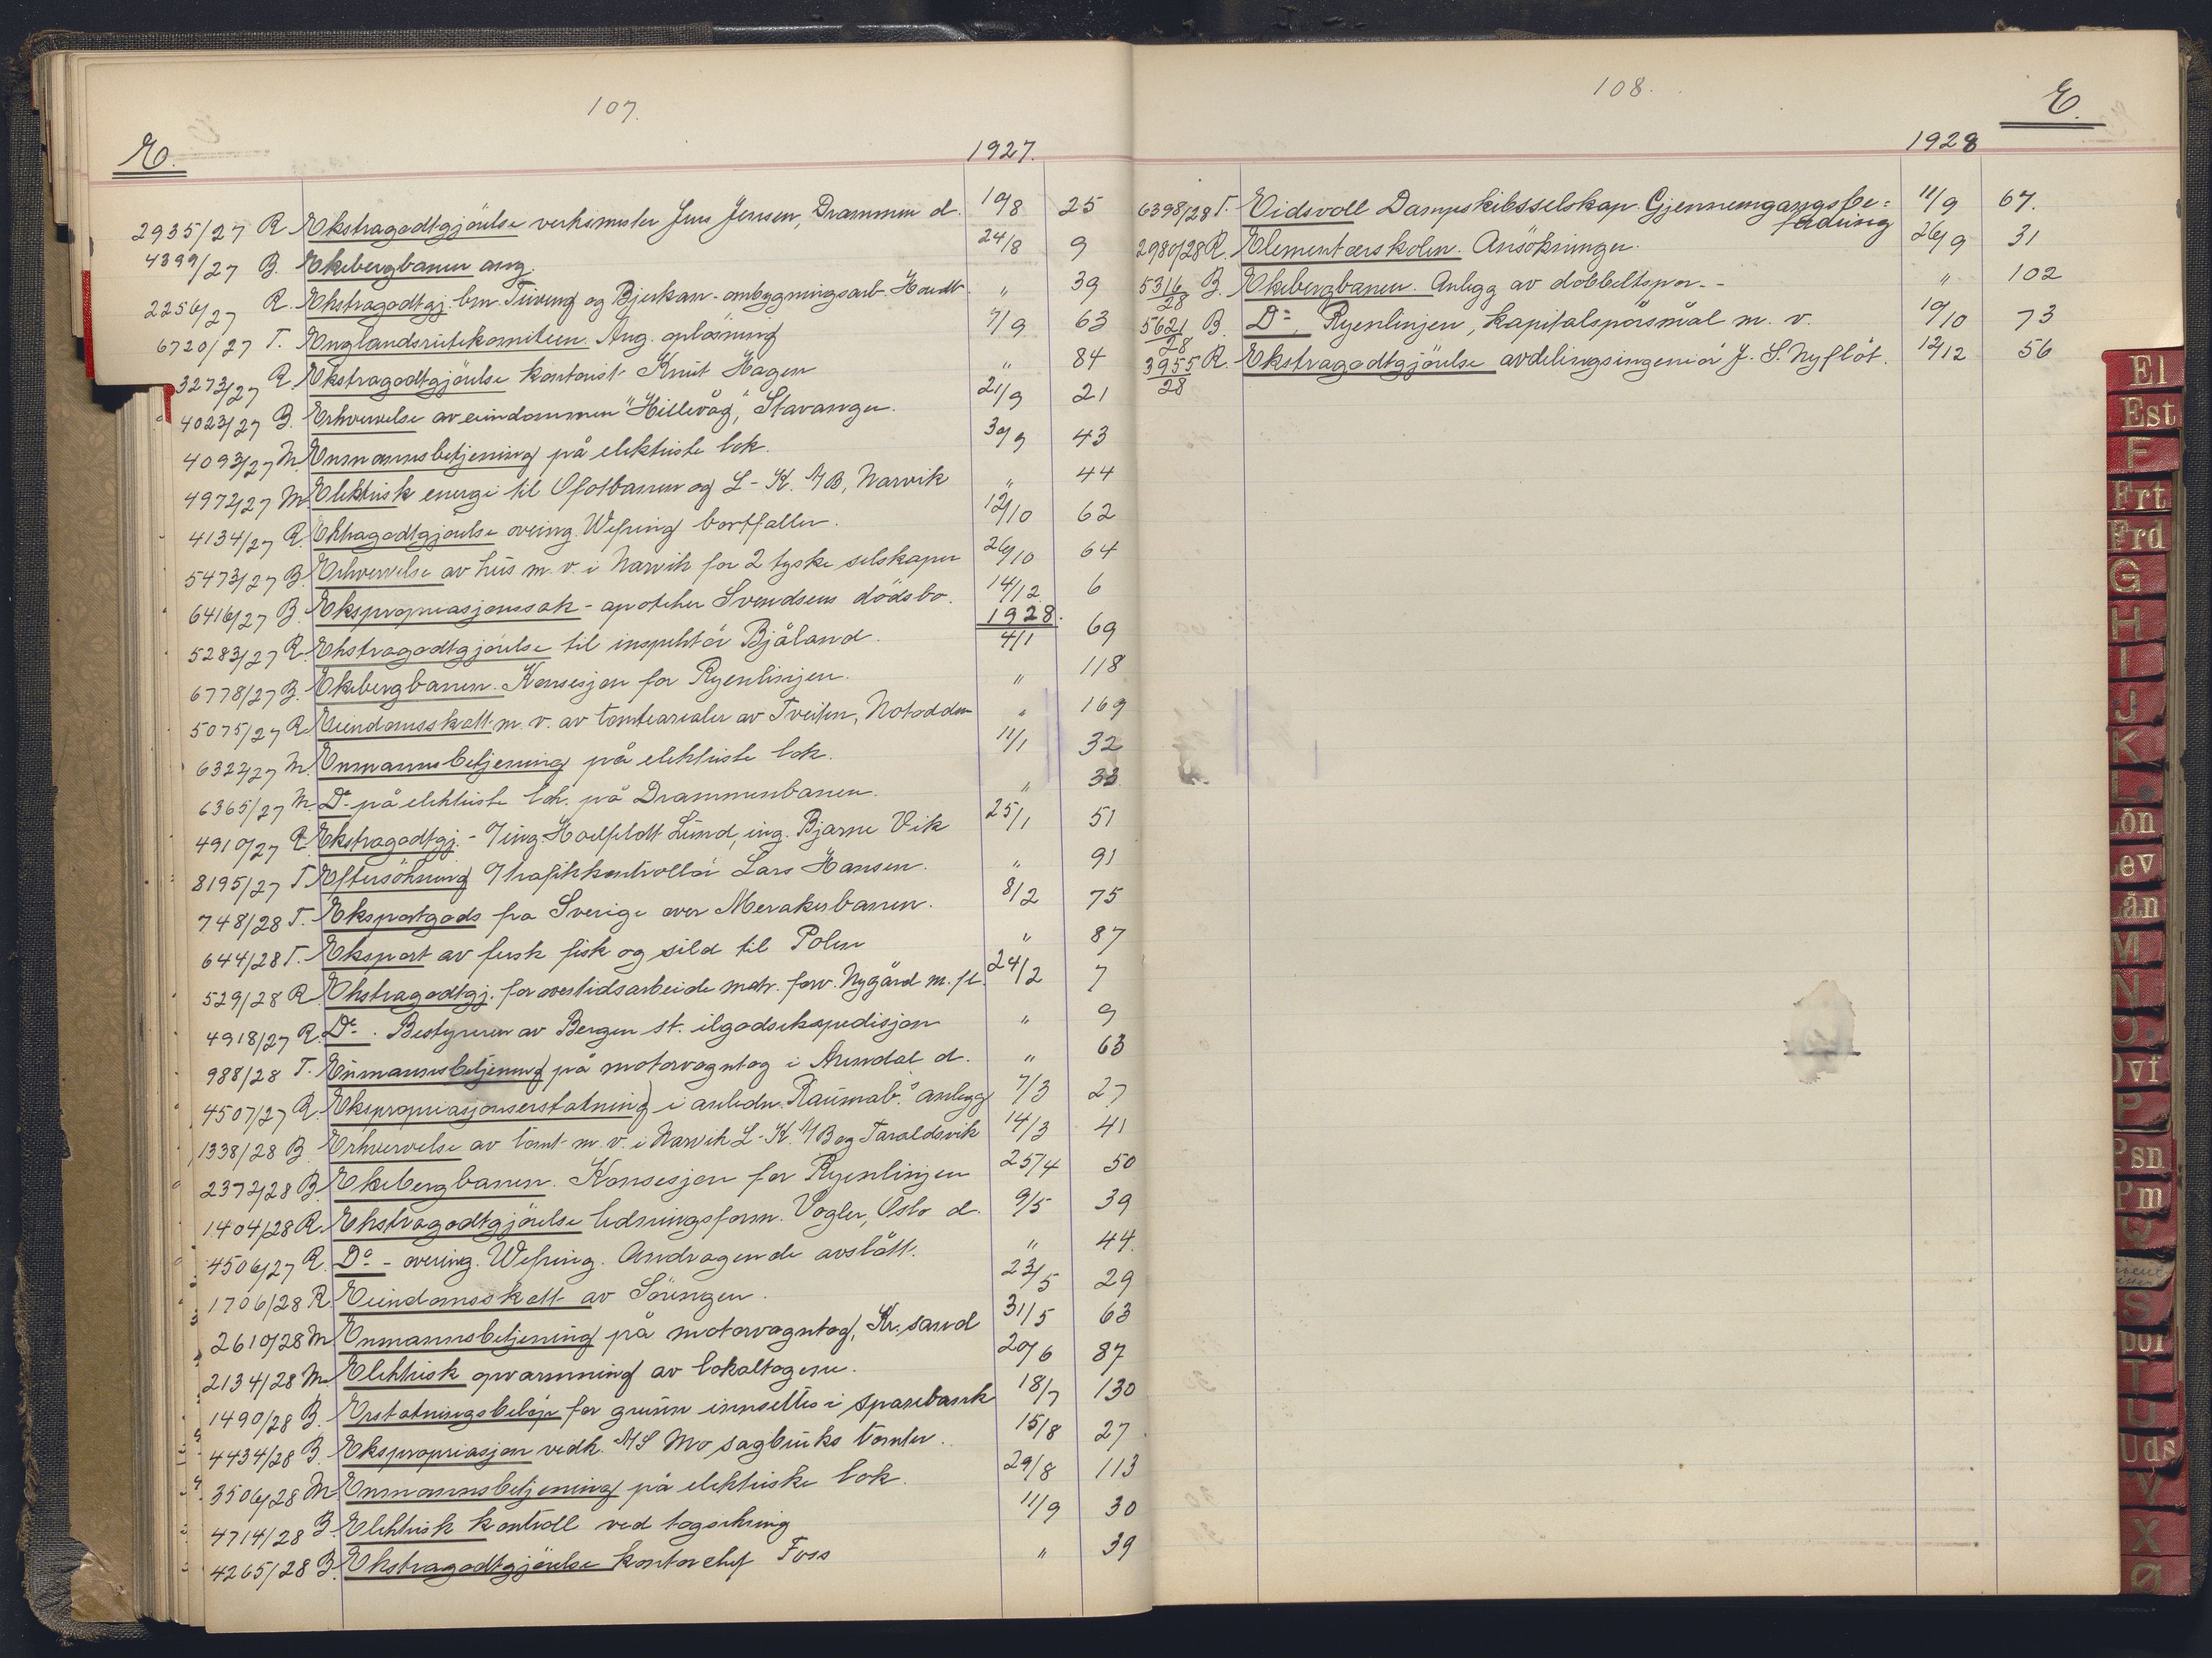 107.
E.
1927.
2935/27 R. Ekstragodtgjörelse verksmester Jens Jensen, Drammen d. 10/8 25
4399/27 B. Ekebergbanen ang. 24/8 9
2256/27 R. Ekstragodtgj. bm. Tüveng og Bjerkan - ombygningsarb. " 39
6720/27 T. Englandsrutekomiteen. Ang. oplösning 7/9 63
3273/27 R. Ekstragodtgjörelse kontorist Knut Hagen " 84
4023/27 B. Erhvervelse av eiendommen "Hillevåg," Stavanger. 21/9 21
4093/27 M. Enmannsbetjening på elektriske lok. 30/9 43
4972/27 M. Elektrisk energi til Ofotbanen og L-K. A/B, Narvik " 44
4134/27 R. Ekstragodtgjörelse overing. Wefring bortfaller. 12/10 62
5473/27 B. Erhvervelse av hus m. v. i Narvik for 2 tyske selskaper 26/10 64
6416/27 B. Ekspropriasjonssak - apoteker Svendsens dödsbo. 14/12 6
1928.
5283/27 R. Ekstragodtgjörelse til inspektör Bjåland. 4/1 69
6778/27 B. Ekebergbanen. Konsesjon for Ryenlinjen. " 118
5075/27 R. Eiendomsskatt m. v. av tomtearealer av Tveiten, Notodden " 169
6322/27 M. Enmannsbetjening på elektriske lok. 11/1 32
6365/27 M. Do på elektriske lok. på Drammenbanen. " 33
4910/27 R. Ekstragodtgj. - Hoelfeldt Lund, ing. Bjarne Vik 25/1 51
8195/27 T. Eftersökning trafikkontrollör Lars Hansen. " 91
748/28 T. Eksportgods fra Sverige over Merakerbanen. 8/2 75
644/28 T. Eksport av fersk fisk og sild til Polen " 87
529/28 R. Ekstragodtgj. for overtidsarbeide matr. forv. Nygård m. fl. 24/2 7
4918/27 R. Do. Bestyreren av Bergen st. ilgodsekspedisjon " 9
988/28 T. Enmannsbetjening på motorvogntog i Arendal d. " 63
4507/27 R. Ekspropriasjonserstatning i anledn. Raumab.s anlegg 7/3 27
1338/28 B. Erhvervelse av tomt m. v. i Narvik L-K. A/B og Taraldsvik 14/3 41
2372/28 B. Ekebergbanen. Konsesjon for Ryenlinjen 25/4 50
1404/28 R. Ekstragodtgjörelse ledningsform. Vogler, Oslo d. 9/5 39
4506/27 R. Do - overing. Wefring. Andragende avslått. " 44.
1706/28 R. Eiendomsskatt av Söringen. 23/5 29
2610/28 M. Enmannsbetjening på motorvogntog, Kr.sand 31/5 63
2134/28 M. Elektrisk opvarmning av lokaltogene. 20/6 87
1490/28 B. Erstatningsbelöp for grunn innsettes i sparebank 18/7 130
4434/28 B. Ekspropriasjon vedk. A/S Mo sagbruks tomter. 15/8 27
3506/28 M. Enmannsbetjening på elektriske lok. 29/8 113
4714/28 B. Elektrisk kontroll ved togsikring 11/9 30
4265/28 B. Ekstragodtgjörelse kontorchef Foss " 39
108.
E.
1928
6398/28 T. Eidsvoll Dampskibsselskap. Gjennemgangsbe=
fadring 11/9 67.
2980/28 R. Elementærskolen. Ansökninger. 26/9 31
5316/28 B. Ekebergbanen. Anlegg av dobbeltspor. - " 102
5621/28 B. Do, Ryenlinjen, kapitalspörsmål m. v. 10/10 73
3955/28 R. Ekstragodtgjörelse avdelingsingeniör J. S. Nyflöt. 12/12 56
El
Est
F
Frt
Frd
G
H
I
J
K
L
Lön
Lev
Lån
M
N
O
Ovf
P
Psn
Pm
Q
S
T
U
Uds
V
X
Ø